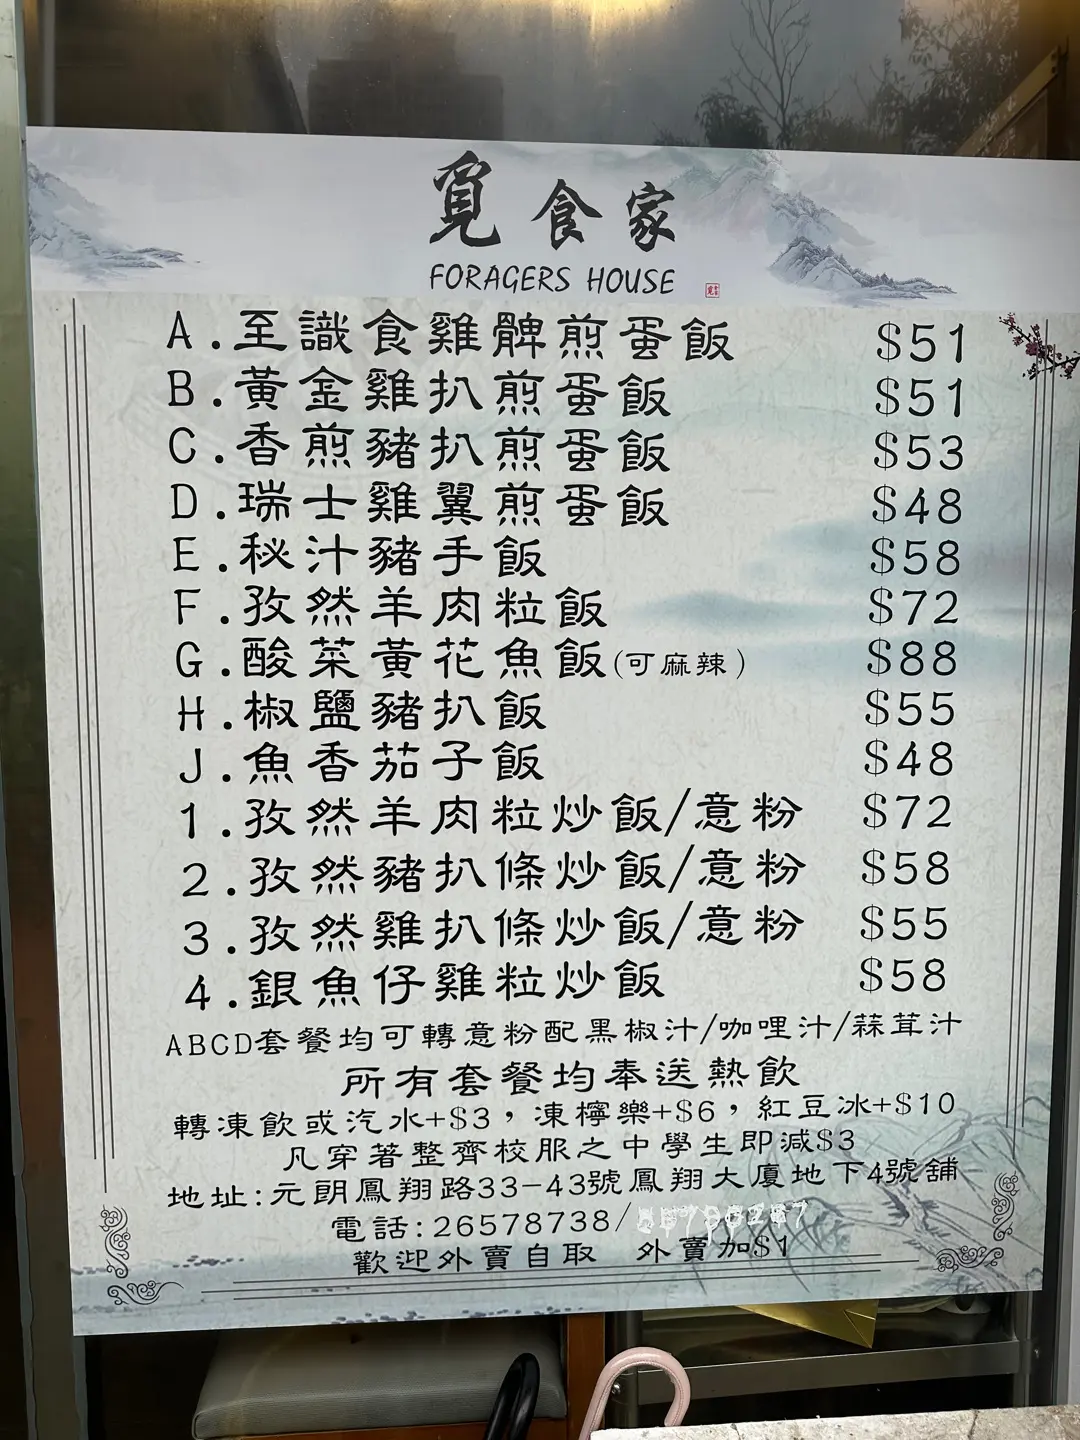 覓食家
FORAGERS HOUSE
A.至識食雞髀煎蛋飯 $51
B.黃金雞扒煎蛋飯 $51
C.香煎豬扒煎蛋飯 $53
D.瑞士雞翼煎蛋飯 $48
E.秘汁豬手飯 $58
F.孜然羊肉粒飯 $72
G.酸菜黃花魚飯(可麻辣) $88
H.椒鹽豬扒飯 $55
J.魚香茄子飯 $48
1.孜然羊肉粒炒飯/意粉 $72
2.孜然豬扒條炒飯/意粉 $58
3.孜然雞扒條炒飯/意粉 $55
4.銀魚仔雞粒炒飯 $58
ABCD套餐均可轉意粉配黑椒汁/咖哩汁/蒜茸汁
所有套餐均奉送熱飲
轉凍飲或汽水+$3，凍檸樂+$6，紅豆冰+$10
凡穿著整齊校服之中學生即減$3
地址:元朗鳳翔路33-43號鳳翔大廈地下4號舖
電話:26578738/
歡迎外賣自取 外賣加$1